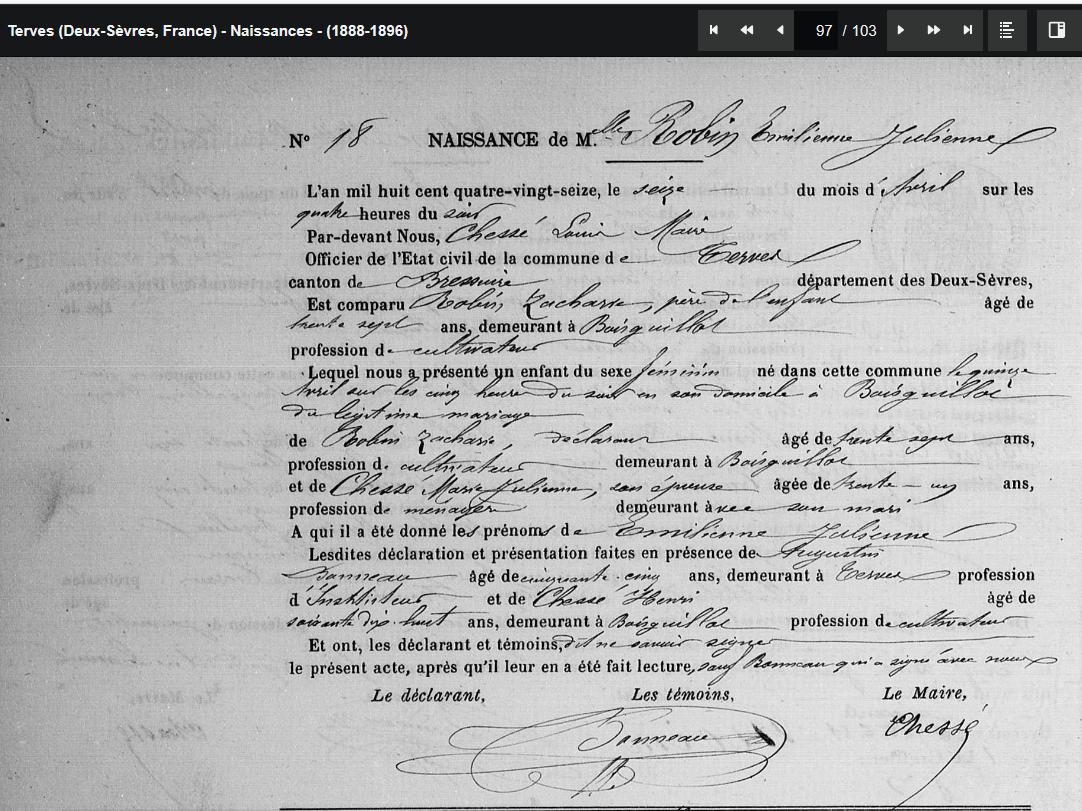 Terves (Deux-Sèvres, France) - Naissances - (1888-1896)
97 / 103
N° 18 NAISSANCE de M.lle Robin Emilienne Julienne
L'an mil huit cent quatre-vingt-seize, le seize du mois d'Avril sur les
quatre heures du soir
Par-devant Nous, Chessé Louis Maire
Officier de l'Etat civil de la commune de Terves
canton de Bressuire département des Deux-Sèvres,
Est comparu Robin Zacharie, père de l'enfant âgé de
trente sept ans, demeurant à Boisguillot
profession de cultivateur
Lequel nous a présenté un enfant du sexe féminin né dans cette commune le quinze
Avril sur les cinq heure du soir en son domicile à Boisguillot
du légitime mariage
de Robin Zacharie déclarant âgé de trente sept ans,
profession de cultivateur demeurant à Boisguillot
et de Chessé Marie Julienne, son épouse âgée de trente - un ans,
profession de ménagère demeurant avec son mari
A qui il a été donné les prénoms de Emilienne Julienne
Lesdites déclaration et présentation faites en présence de Augustin
Bonneau âgé de cinquante cinq ans, demeurant à Terves profession
d'Instituteur et de Chessé Henri âgé de
soixante dix-huit ans, demeurant à Boisguillot profession de cultivateur
Et ont, les déclarant et témoins, dit ne savoir signer
le présent acte, après qu'il leur en a été fait lecture, sauf Bonneau qui a signé avec nous
Le déclarant, Les témoins, Le Maire,
Bonneau Chessé